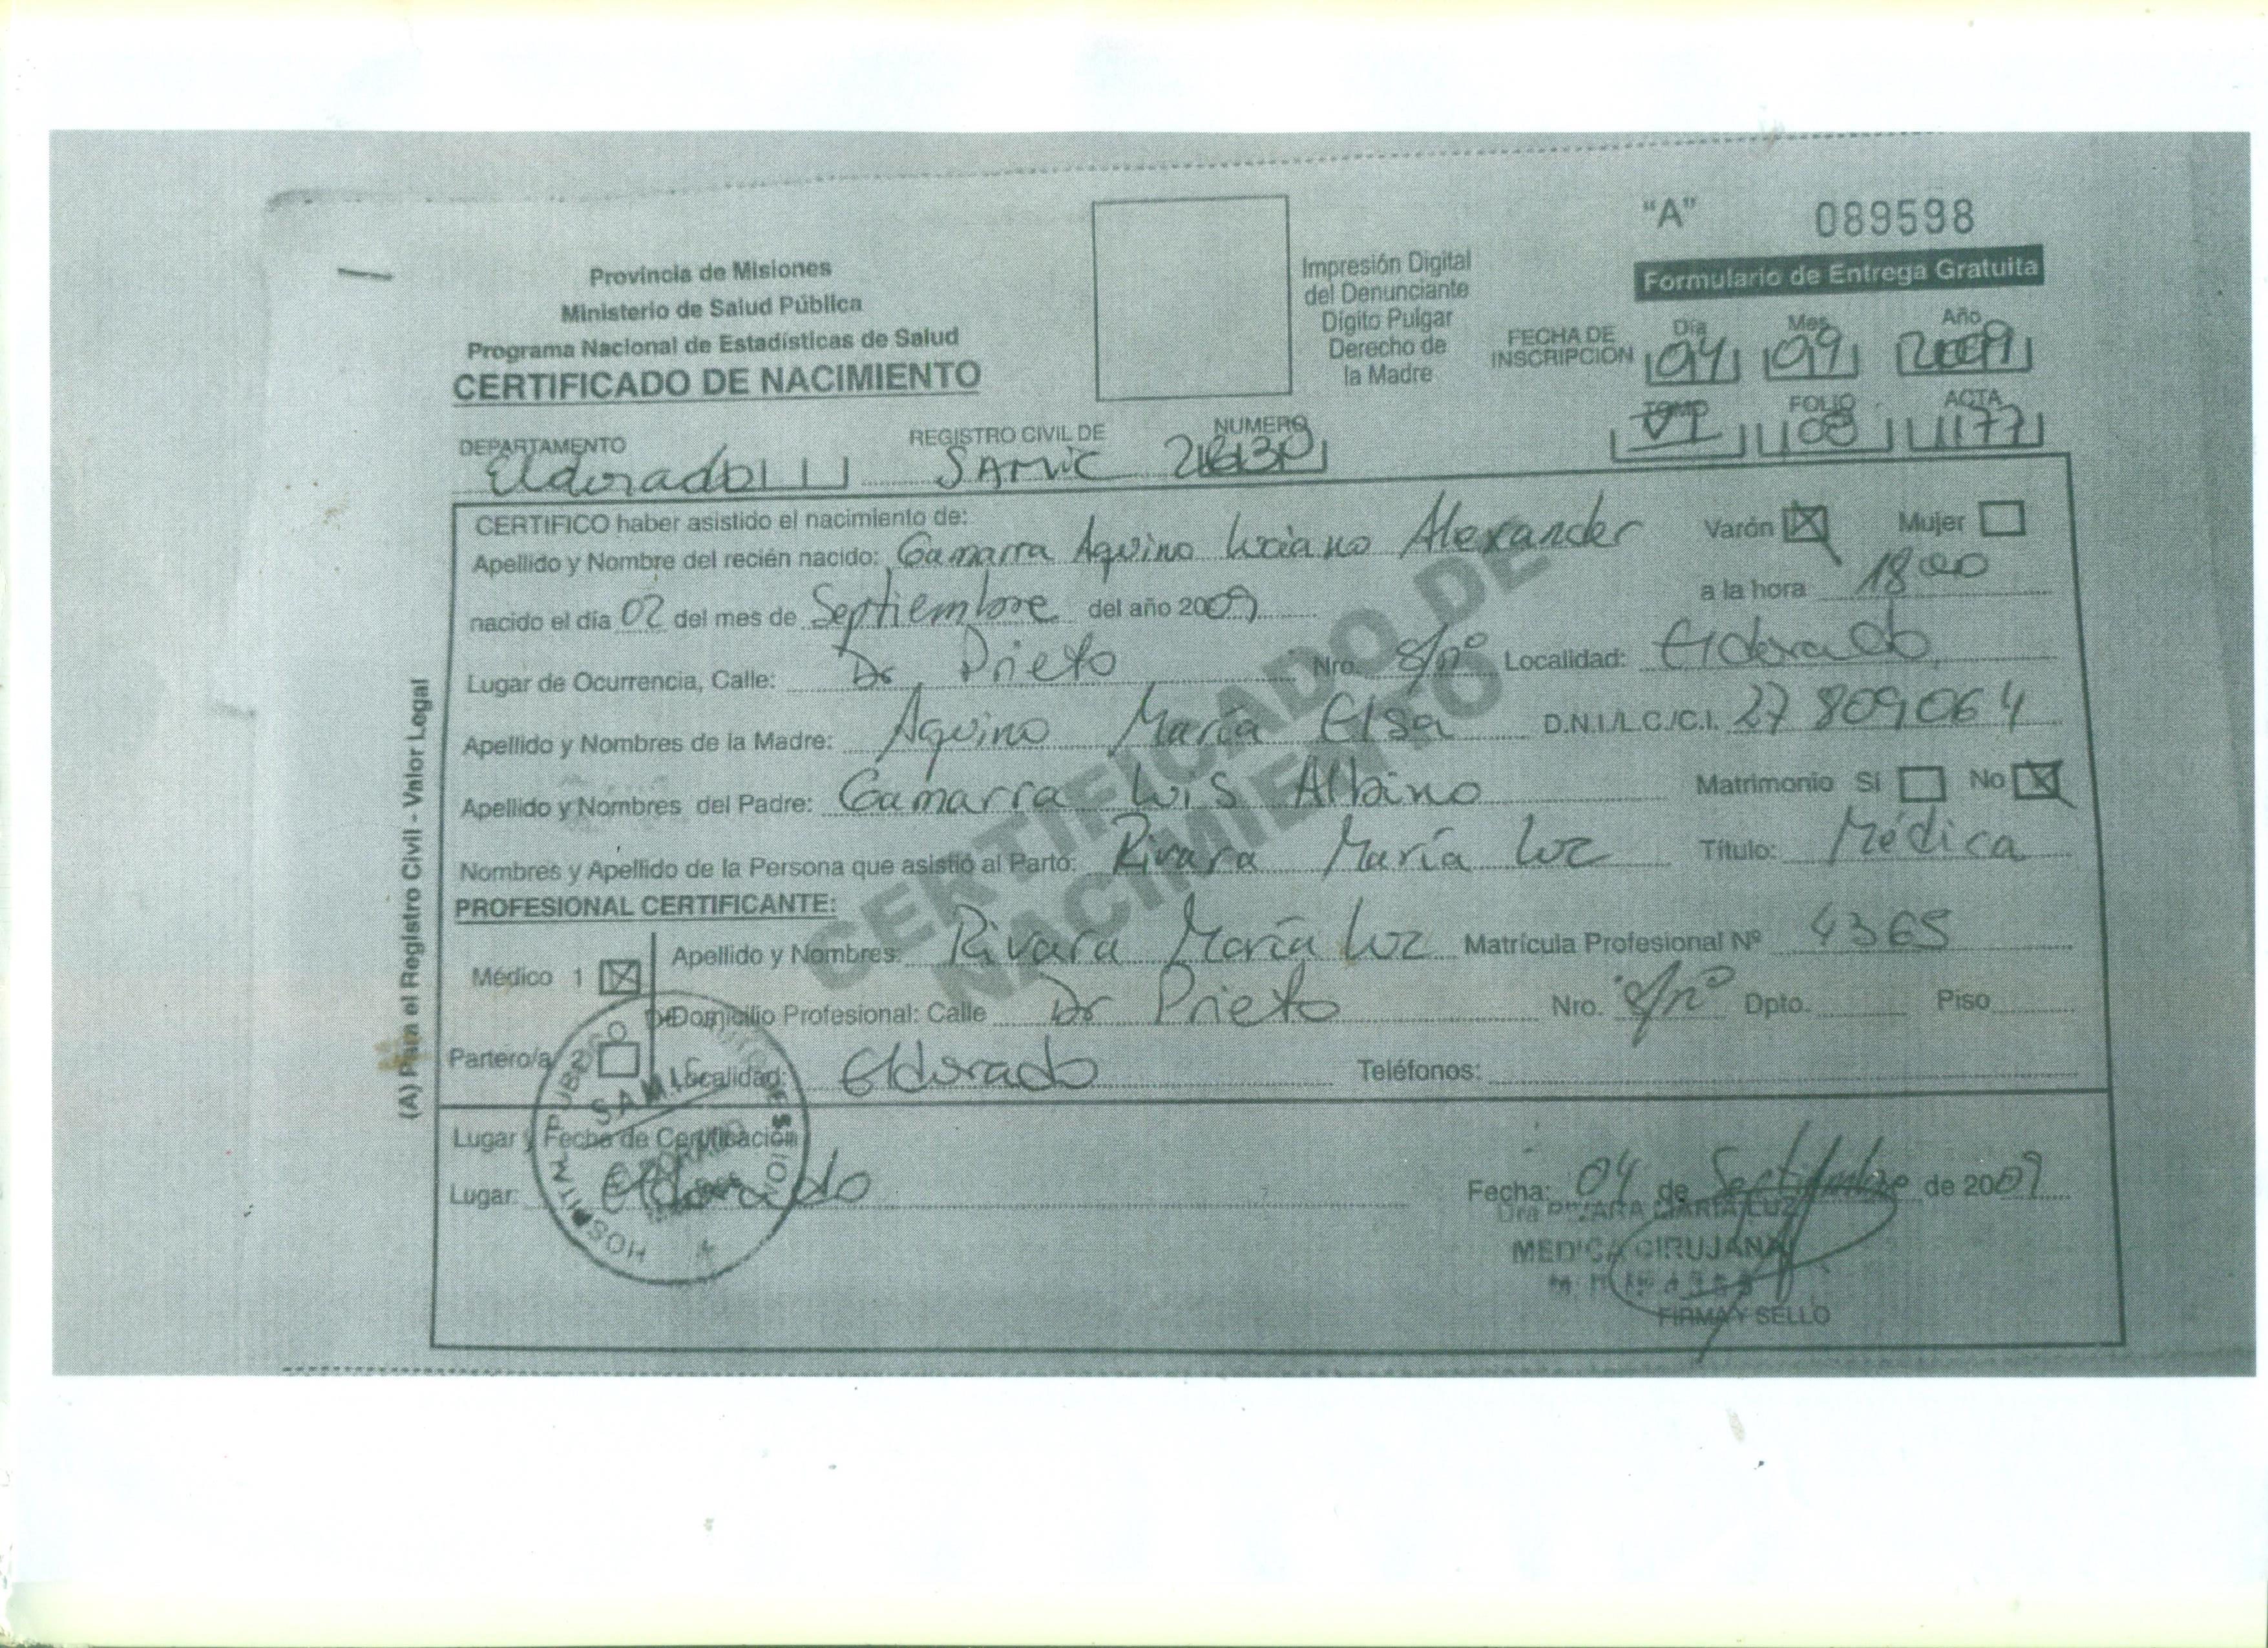 "A" 089598
Provincia de Misiones
Ministerio de Salud Pública
Programa Nacional de Estadísticas de Salud
CERTIFICADO DE NACIMIENTO
Impresión Digital
del Denunciante
Dígito Pulgar
Derecho de
la Madre
Formulario de Entrega Gratuita
FECHA DE INSCRIPCIÓN Día 04 Mes 09 Año 2009
TOMO VI FOLIO 108 ACTA 1177
DEPARTAMENTO Eldorado REGISTRO CIVIL DE SAMIC NUMERO
CERTIFICO haber asistido el nacimiento de:
Apellido y Nombre del recién nacido: Gamarra Aquino Luciano Alexander Varón X Mujer
nacido el día 02 del mes de Septiembre del año 2009 a la hora 18 00
Lugar de Ocurrencia, Calle: Dr Prieto Nro. s/nº Localidad: Eldorado
Apellido y Nombres de la Madre: Aquino María Elsa D.N.I./L.C./C.I. 27 809064
Apellido y Nombres del Padre: Gamarra Luis Albino Matrimonio Sí No X
Nombres y Apellido de la Persona que asistió al Parto: Rivara María Luz Título: Médica
PROFESIONAL CERTIFICANTE:
Médico 1 X Apellido y Nombres: Rivara María Luz Matrícula Profesional Nº 4365
Domicilio Profesional: Calle Dr Prieto Nro. s/nº Dpto. Piso
Partero/a 2 Localidad: Eldorado Teléfonos:
Lugar y Fecha de Certificación
Lugar: Eldorado Fecha: 04 de Septiembre de 2009
Dra RIVARA MARIA LUZ
MEDICA CIRUJANA
FIRMA Y SELLO
HOSPITAL PUBLICO
SAMIC
ELDORADO
MISIONES
(A) Para el Registro Civil - Valor Legal
CERTIFICADO DE
NACIMIENTO